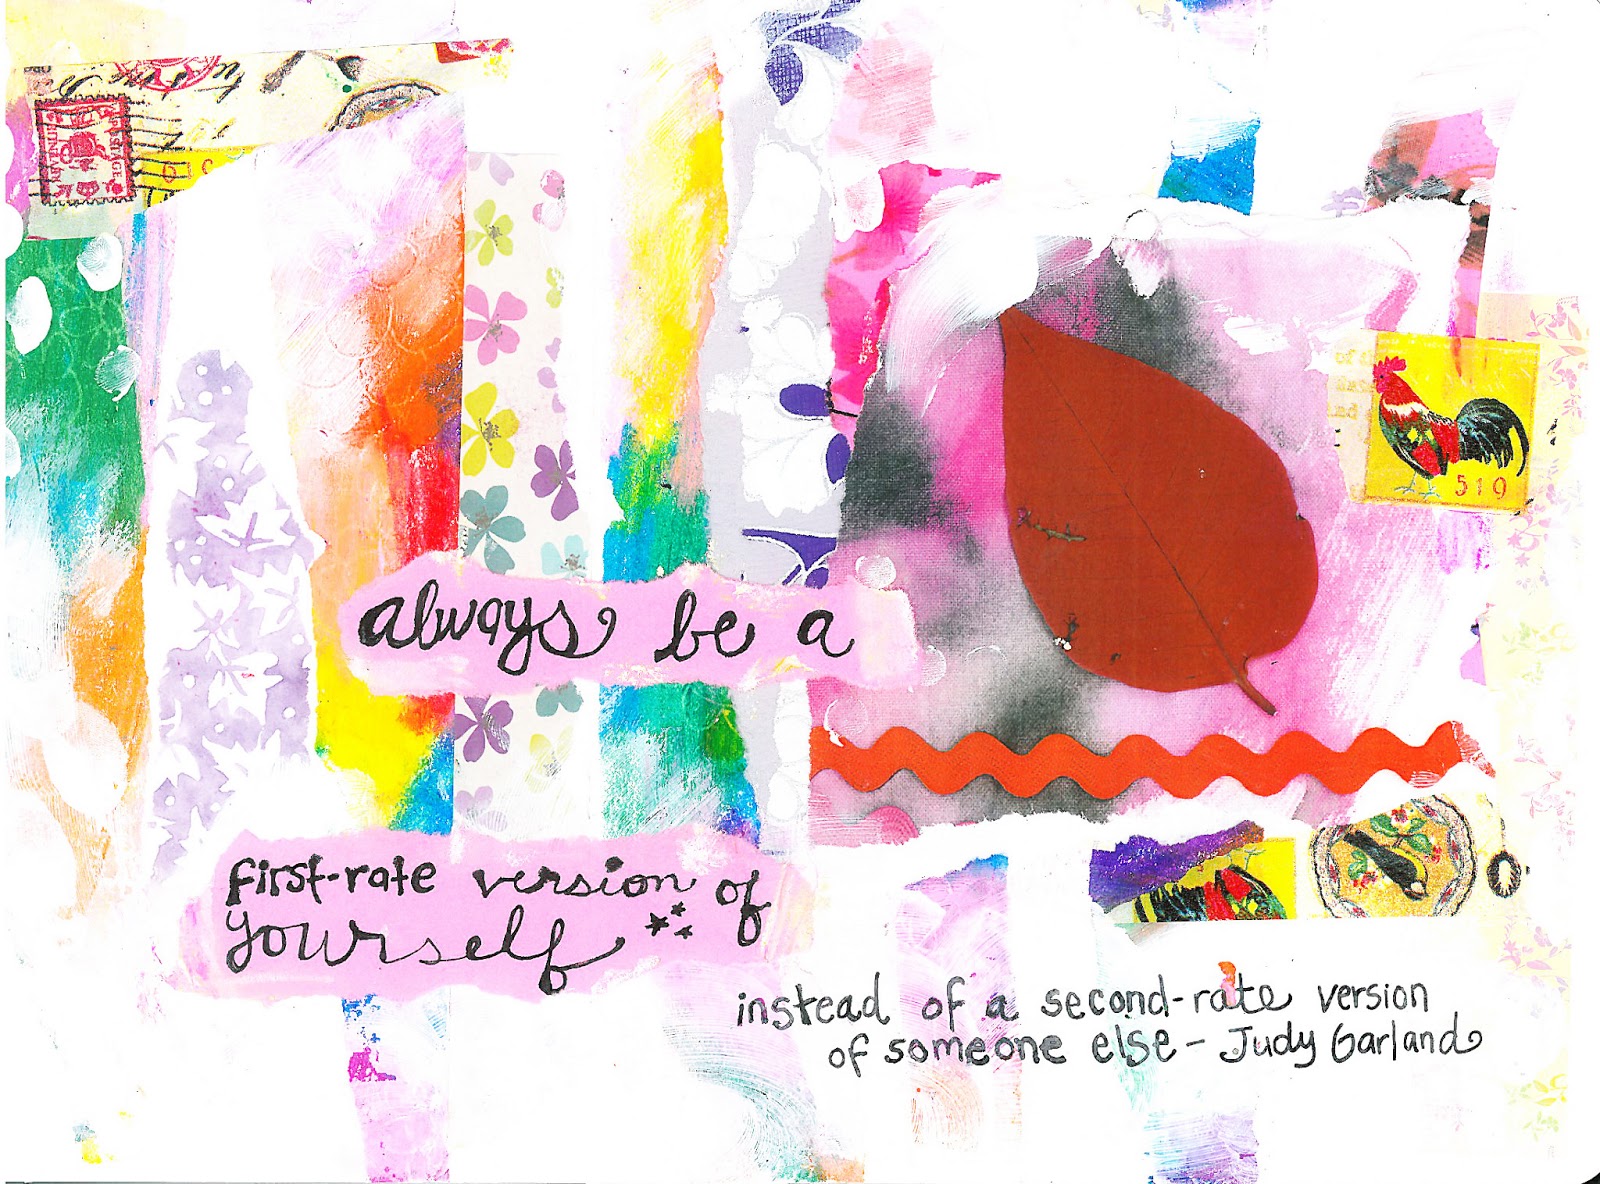 POSTAGE
always be a
519
first-rate version of
yourself
instead of a second-rate version
of someone else - Judy Garland